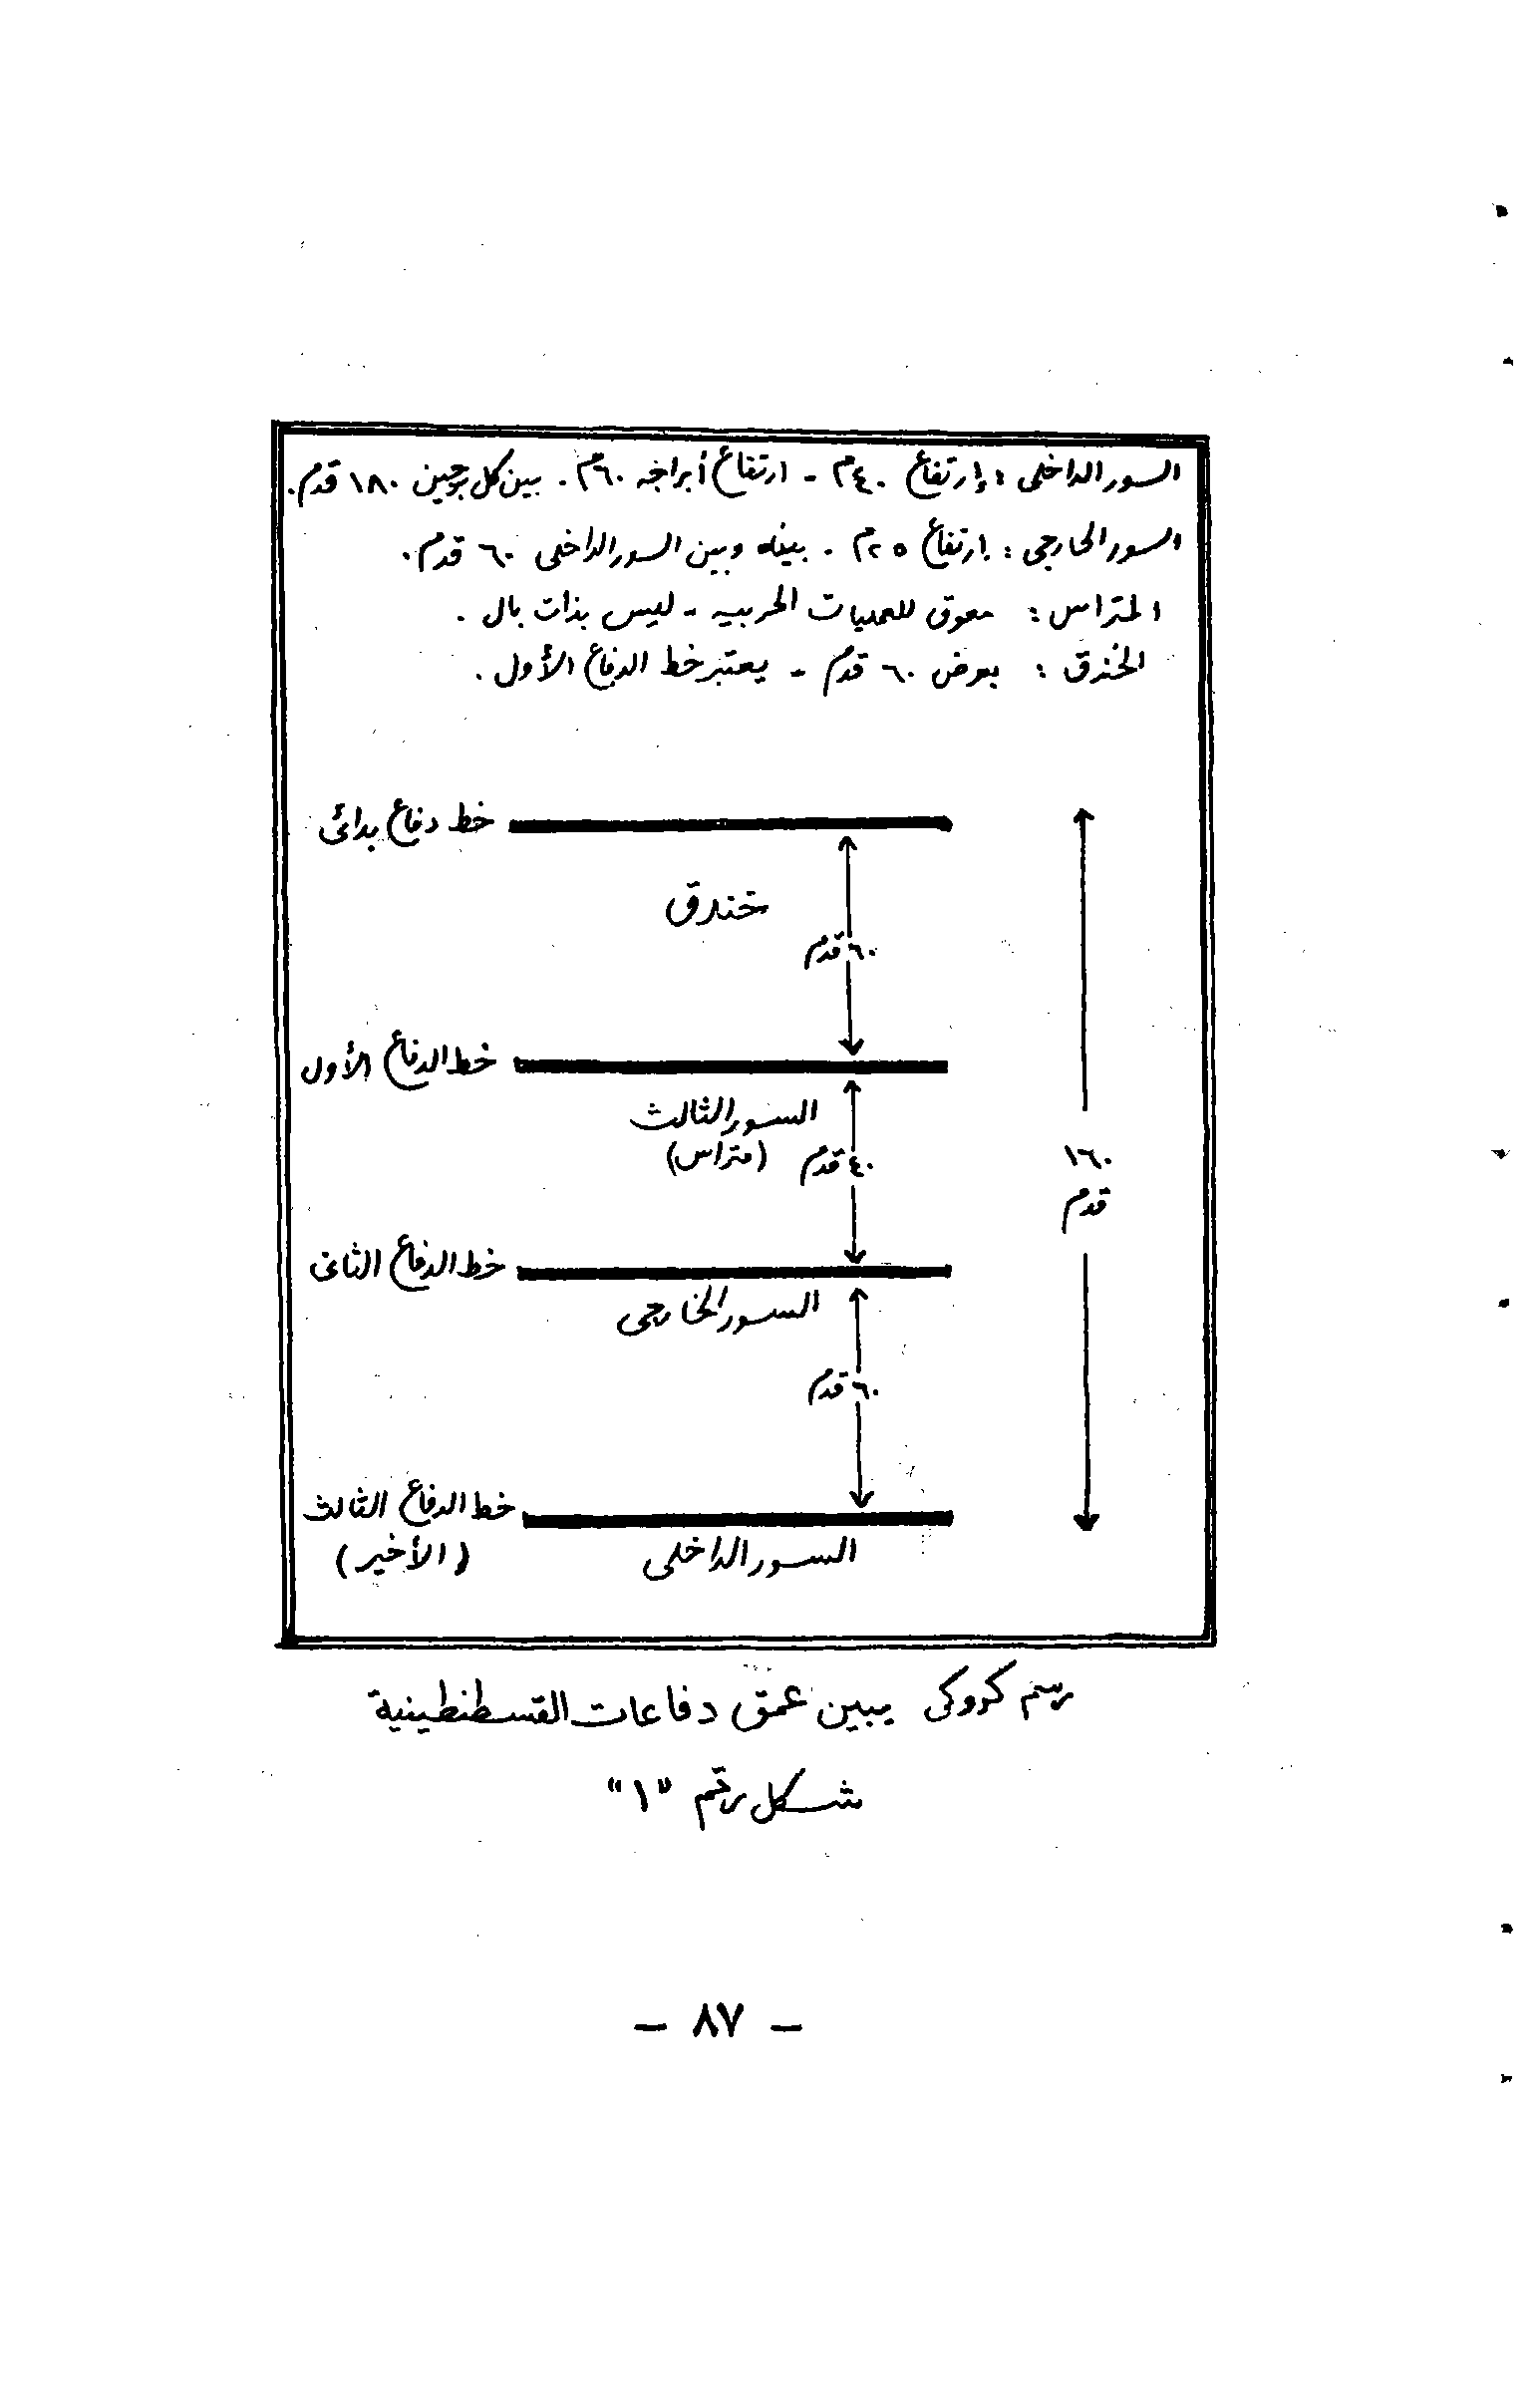 السور الداخلى : إرتفاع ٤٠م - ارتفاع أبراجه ٦٠م. بين كل برجين ١٨٠ قدم.
السور الخارجى : ارتفاع ٢٥م . بينه وبين السور الداخلى ٦٠ قدم.
المتراس : معوق للعمليات الحربيه - ليس بذات بال .
الخندق : بعرض ٦٠ قدم - يعتبر خط الدفاع الأول .
خط دفاع بدائى
خندق
٦٠ قدم
خط الدفاع الأول
السور الثالث
(متراس)
٤٠ قدم
١٦٠
قدم
خط الدفاع الثانى
السور الخارجى
٦٠ قدم
خط الدفاع الثالث
(الأخير)
السور الداخلى
رسم كروكى يبين عمق دفاعات القسطنطينية
شكل رقم "١"
- ٨٧ -